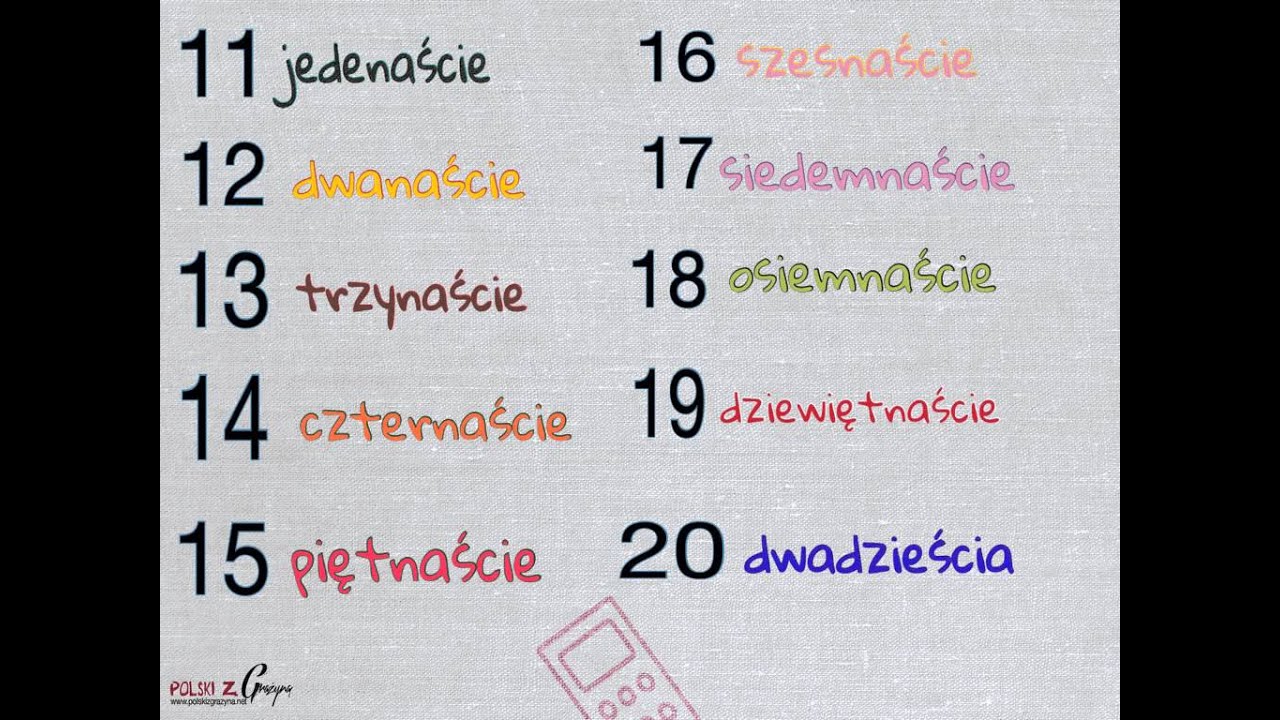 11 jedenaście
12 dwanaście
13 trzynaście
14 czternaście
15 piętnaście
16 szesnaście
17 siedemnaście
18 osiemnaście
19 dziewiętnaście
20 dwadzieścia
POLSKI Z Grażyną
www.polskizgrazyna.net